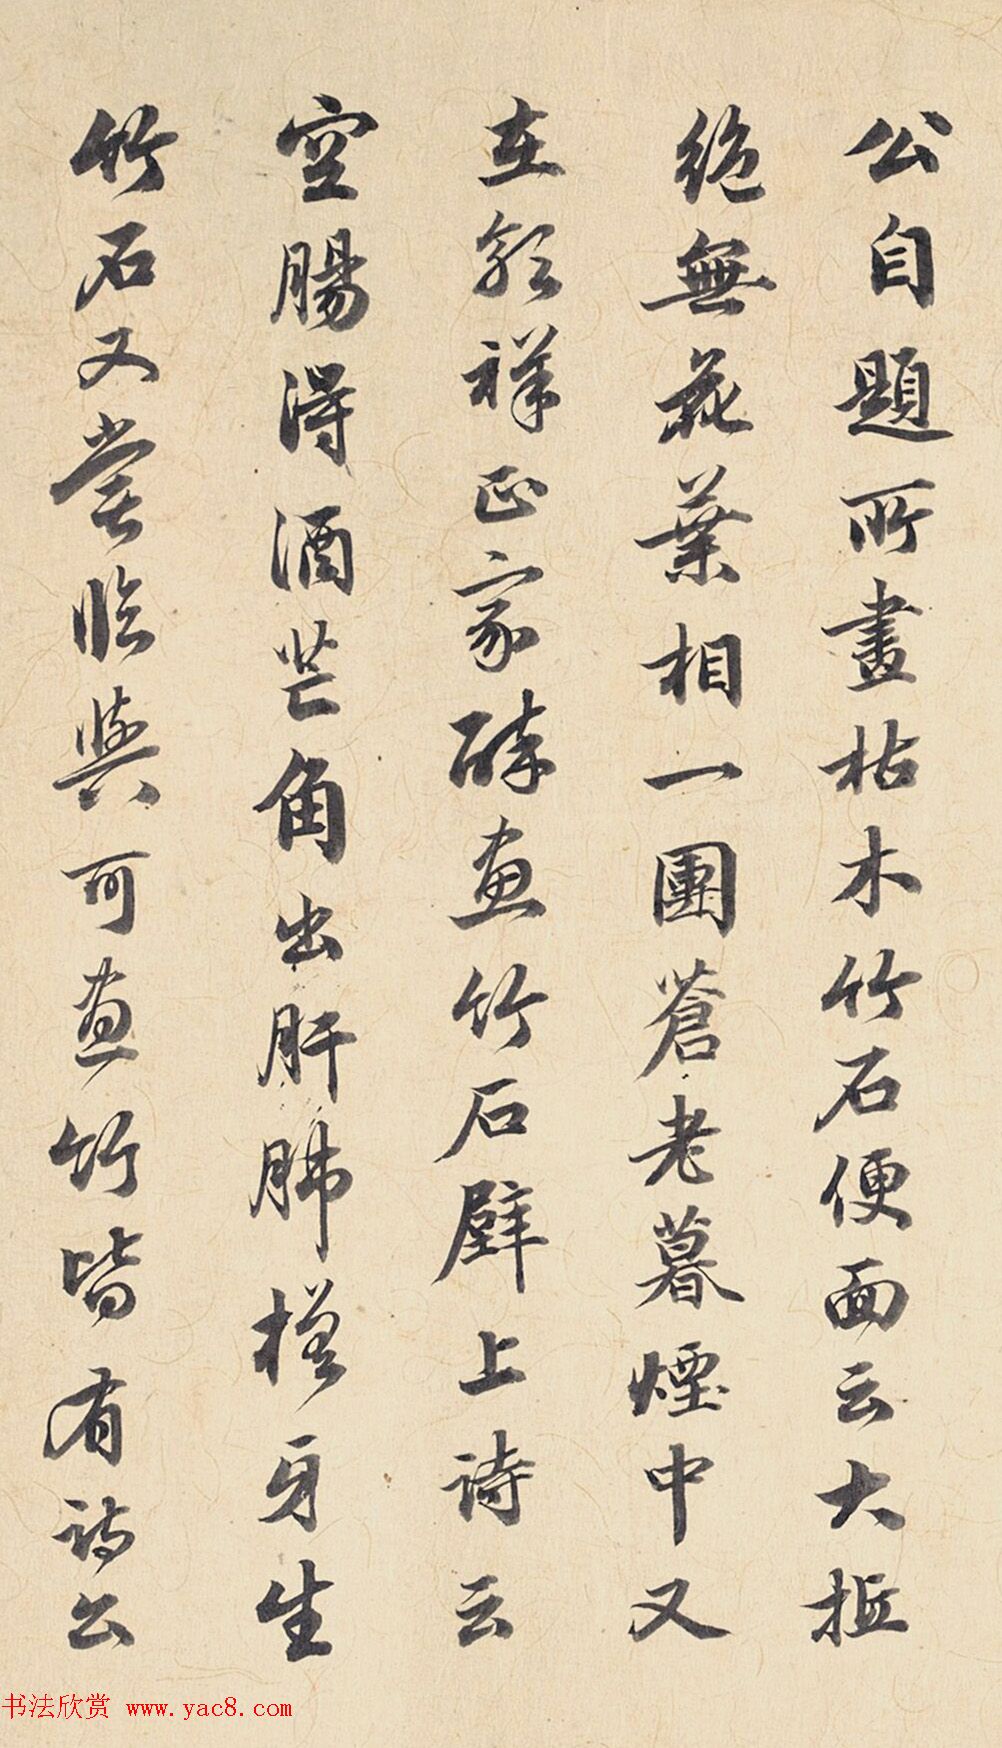 公自題所畫枯木竹石便面云大抵
絶無花葉相一團蒼老暮煙中又
在郭祥正家醉畫竹石壁上詩云
空腸得酒芒角出肝肺槎牙生
竹石又嘗臨與可畫竹皆有詩公
书法欣赏 www.yac8.com